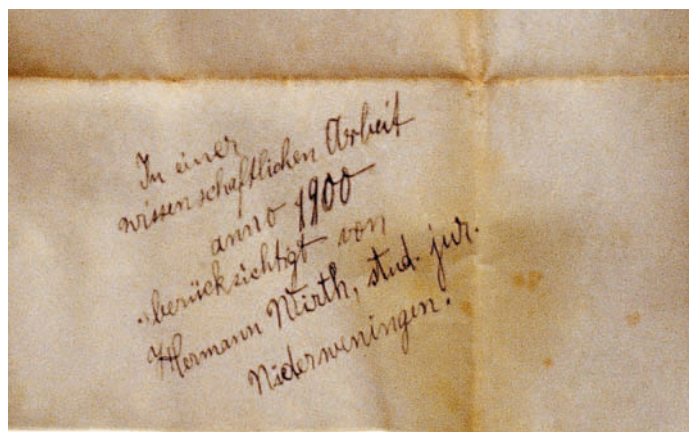 In einer
wissenschaftlichen Arbeit
anno 1900
berücksichtigt von
Hermann Wirth, stud. jur.
Niederweningen.